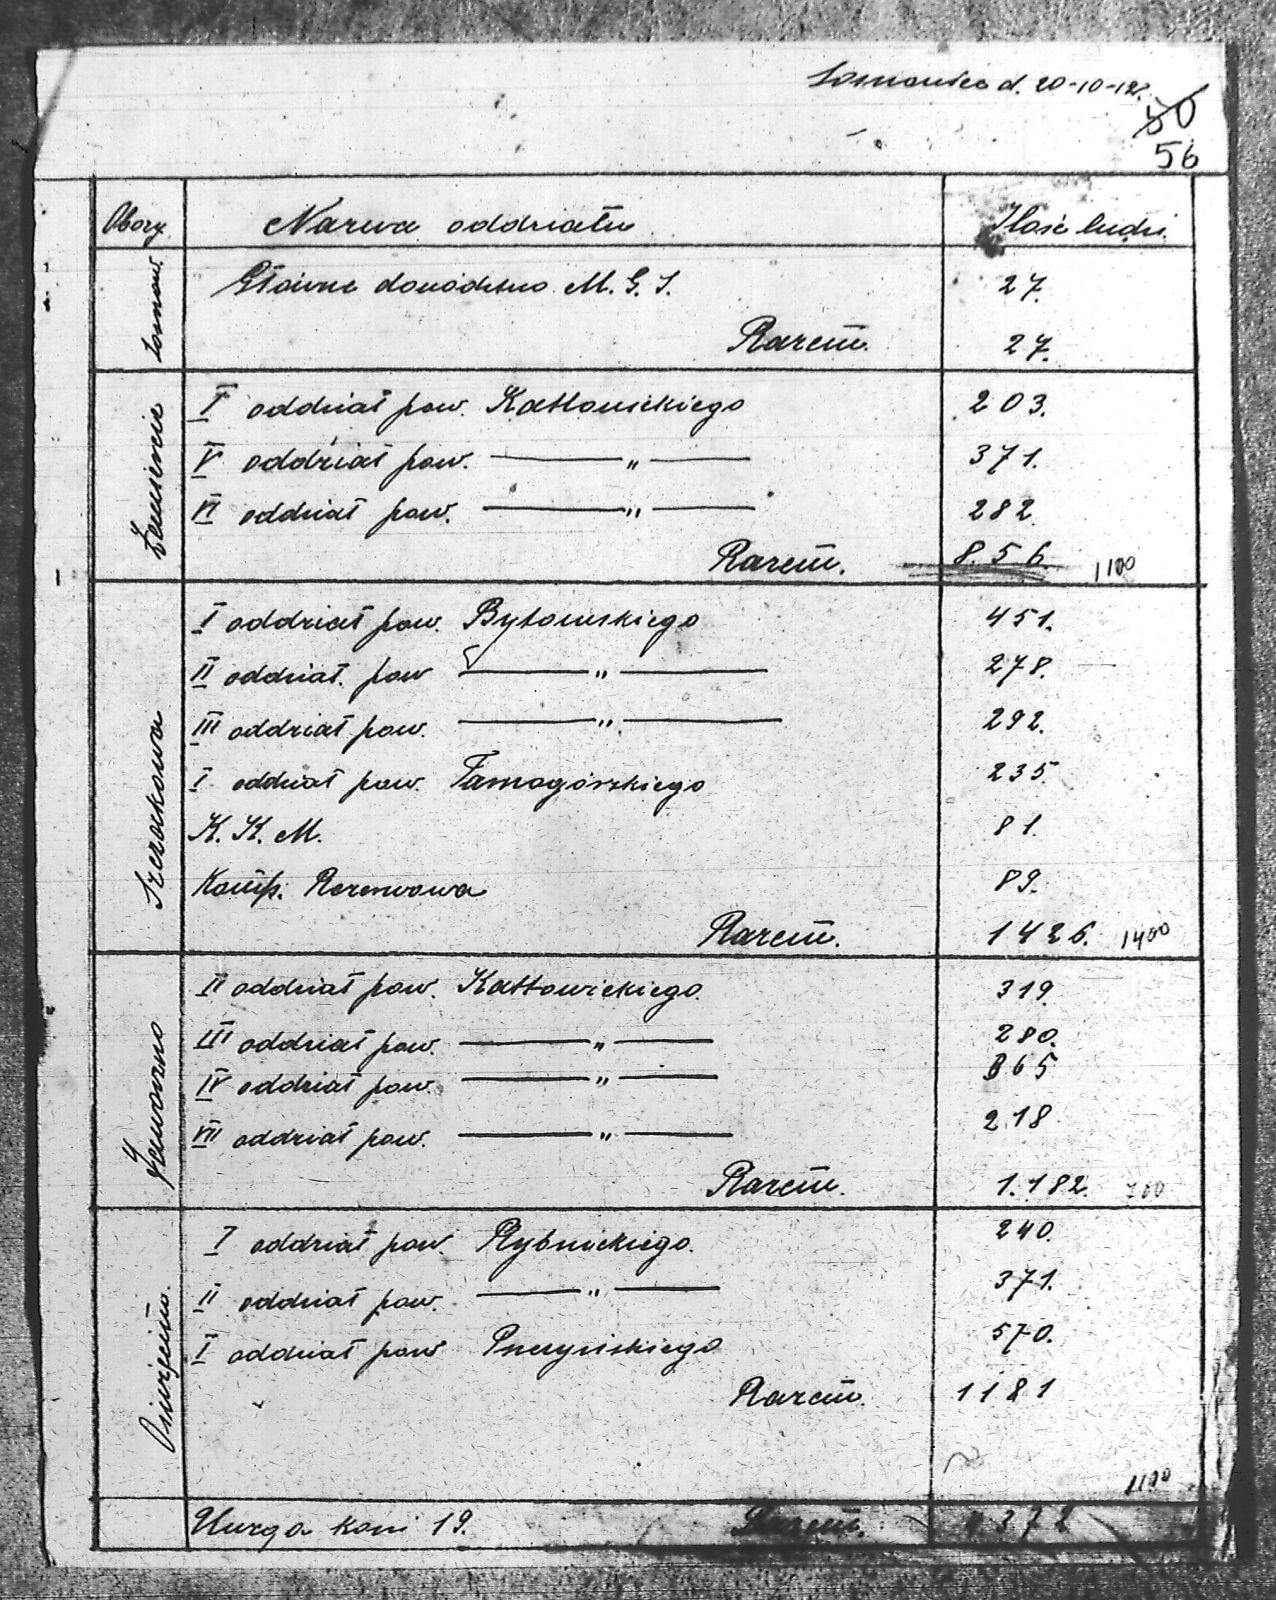 Sosnowiec d. 20-10-19r.
50
56
Obozy Nazwa oddziału Ilość ludzi.
Sosnow. Główne dowództwo M. G. S. 27.
Razem. 27.
I oddział pow. Katowickiego 203.
V oddział pow. — „ — 371.
VI oddział pow. — „ — 282
Razem. 8.56. 1100
Szczakowa
I oddział pow. Bytomskiego 451.
II oddział. pow — „ — 278.
III oddział pow. — „ — 292.
I oddział pow. Tarnogórskiego 235
K. K. M. 81.
Komp. Rezerwowa 89.
Razem. 1426. 1400
Jaworzno
II oddział pow. Kattowickiego. 319
III oddział pow. — „ — 280.
IV oddział pow. — „ — 365
VII oddział pow. — „ — 218
Razem. 1.182. 700
Oświęcim.
I oddział pow. Rybnickiego. 240.
II oddział pow. — „ — 371.
I oddział pow Pszczyńskiego 570.
Razem. 1181
1100
Uwaga koni 19. Razem. 4372